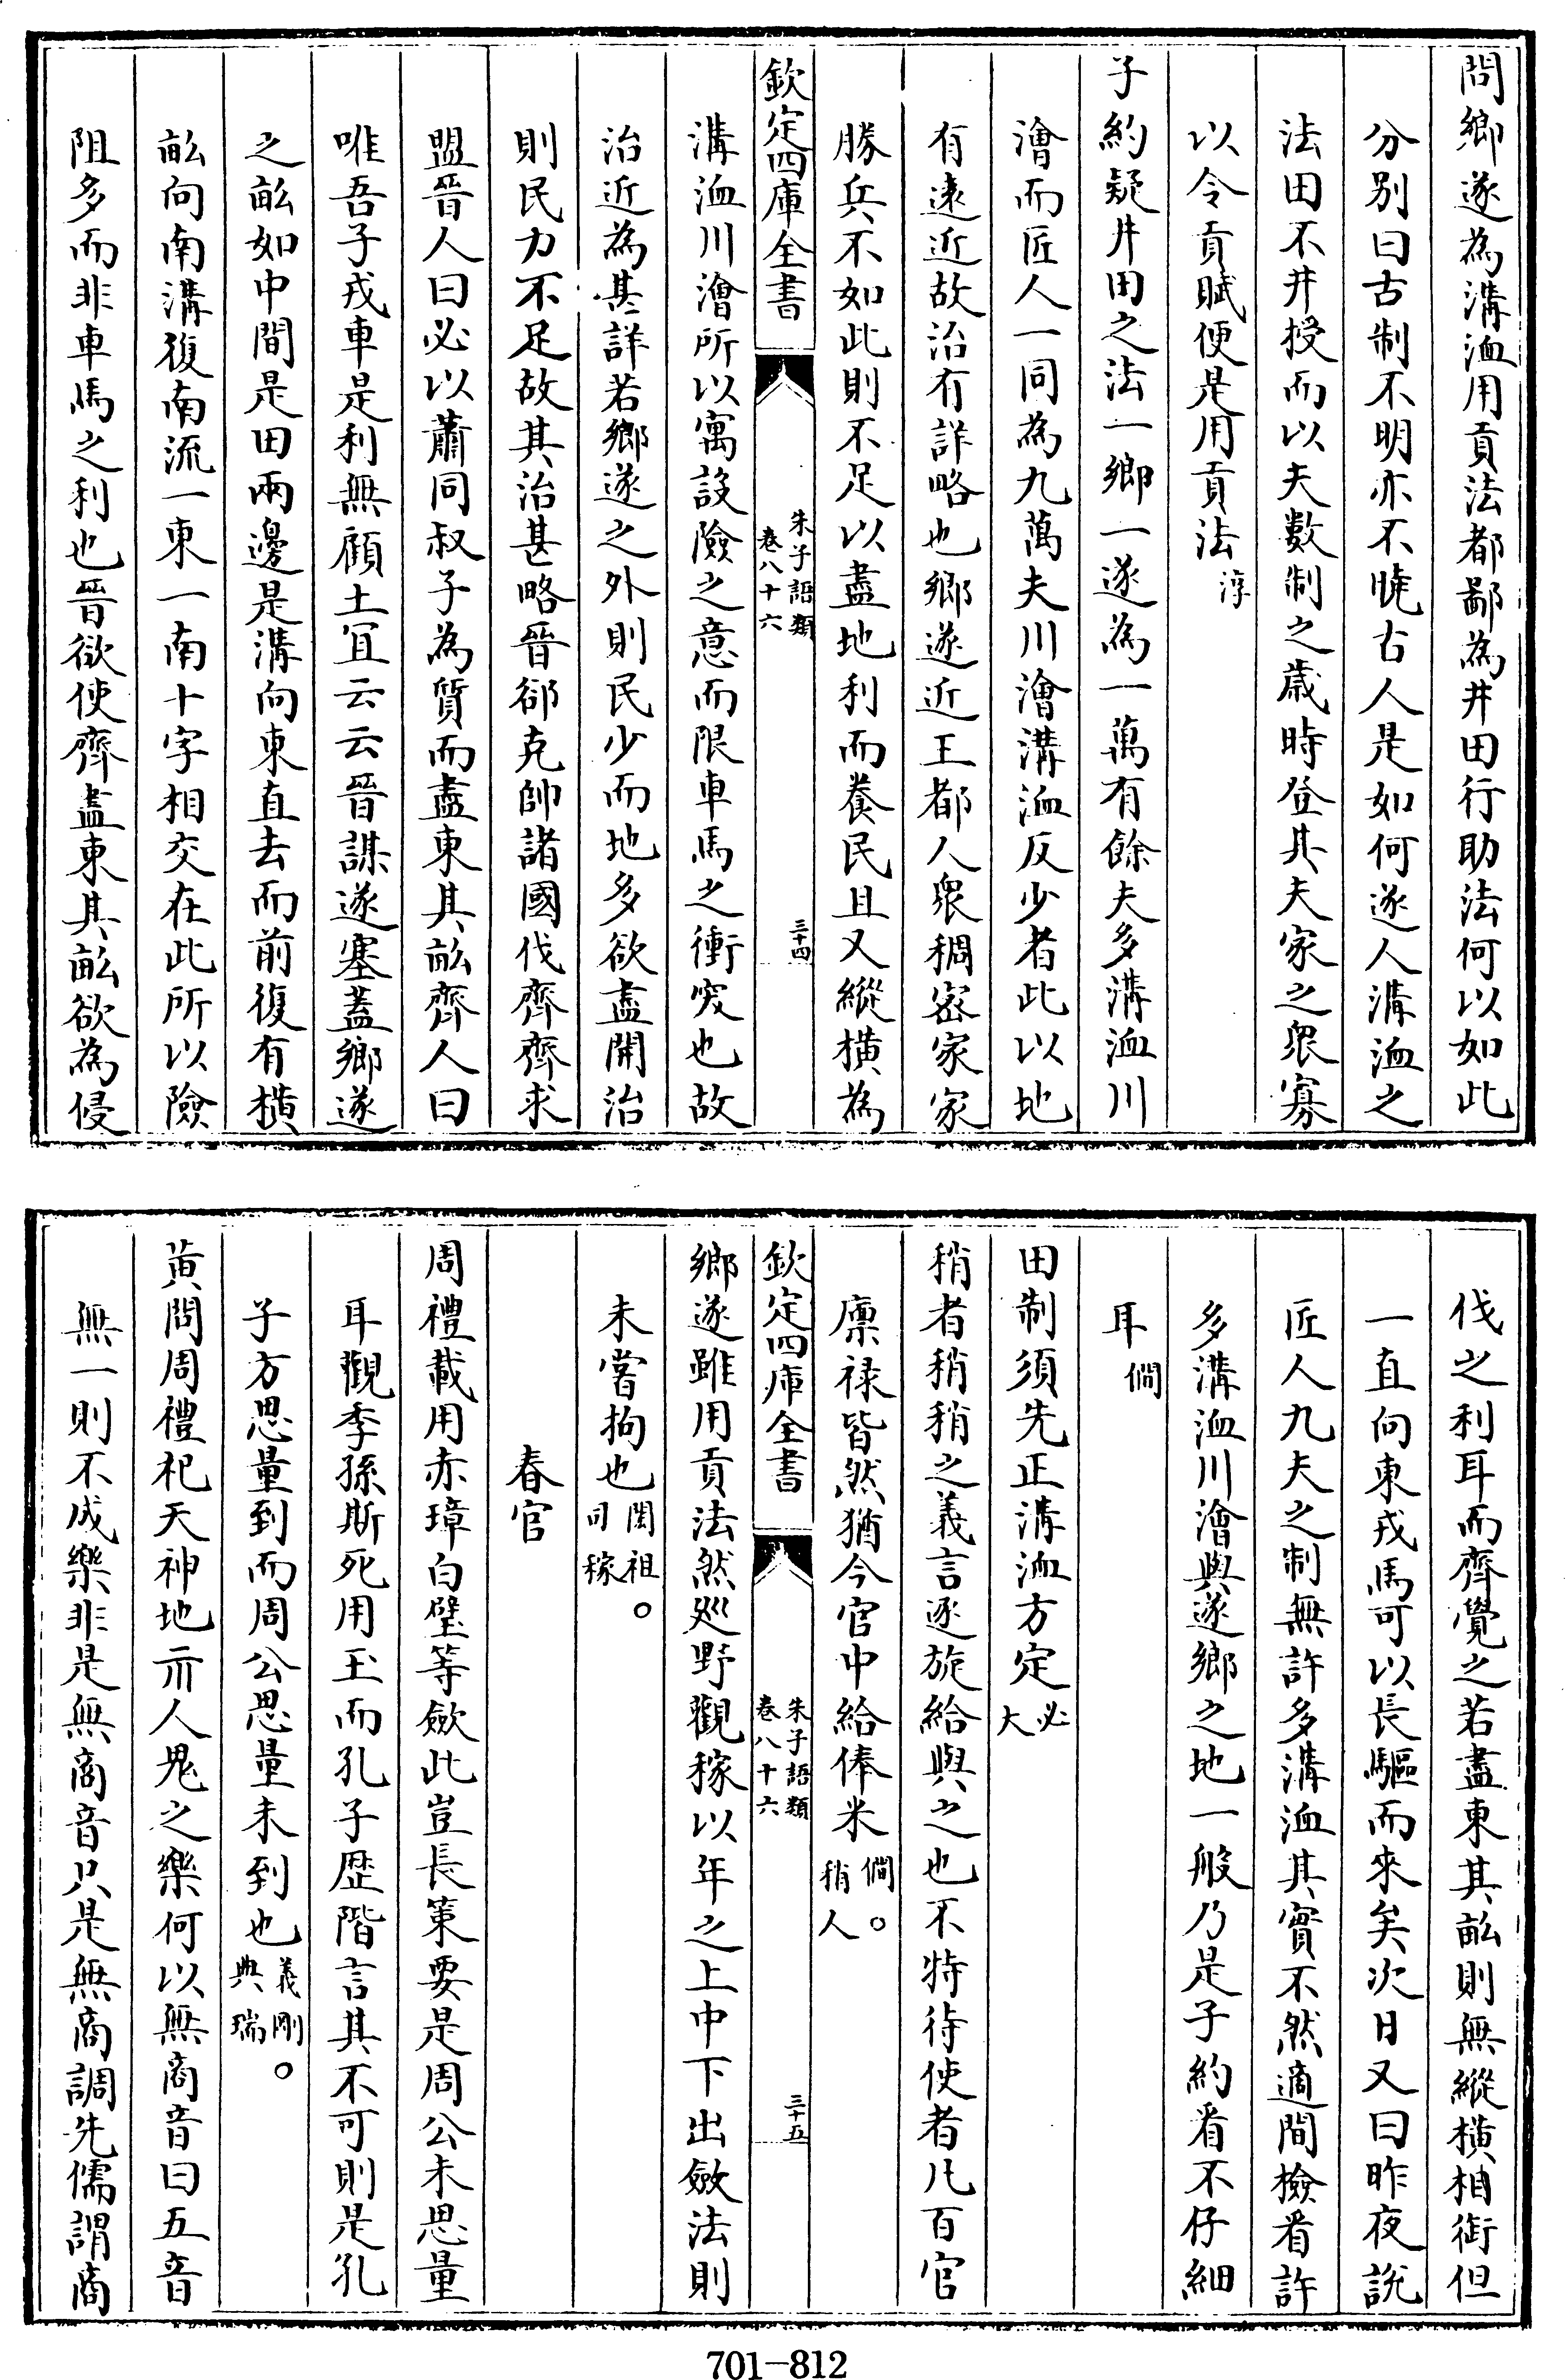 問鄉遂為溝洫用貢法都鄙為井田行助法何以如此
分别曰古制不明亦不曉古人是如何遂人溝洫之
法田不井授而以夫數制之歲時登其夫家之衆寡
以令貢賦便是用貢法淳
子約疑井田之法一鄉一遂為一萬有餘夫多溝洫川
澮而匠人一同為九萬夫川澮溝洫反少者此以地
有遠近故治有詳略也鄉遂近王都人衆稠宻家家
勝兵不如此則不足以盡地利而養民且又縱横為
欽定四庫全書
朱子語類
卷八十六
三十四
溝洫川澮所以寓設險之意而限車馬之衝突也故
治近為甚詳若鄉遂之外則民少而地多欲盡開治
則民力不足故其治甚略晉郤克帥諸國伐齊齊求
盟晉人曰必以蕭同叔子為質而盡東其畝齊人曰
唯吾子戎車是利無顧土宜云云晉謀遂塞蓋鄉遂
之畝如中間是田兩邊是溝向東直去而前復有横
畝向南溝復南流一東一南十字相交在此所以險
阻多而非車馬之利也晉欲使齊盡東其畝欲為侵
伐之利耳而齊覺之若盡東其畝則無縱横相銜但
一直向東戎馬可以長驅而來矣次日又曰昨夜說
匠人九夫之制無許多溝洫其實不然適間檢看許
多溝洫川澮與遂鄉之地一般乃是子約看不仔細
耳僩
田制須先正溝洫方定必大
稍者稍稍之義言逐旋給與之也不特待使者凡百官
廪禄皆然猶今官中給俸米僩。稍人
欽定四庫全書
朱子語類
卷八十六
三十五
鄉遂雖用貢法然廵野觀稼以年之上中下出斂法則
未嘗拘也閎祖。司稼
春官
周禮載用赤璋白璧等斂此豈長策要是周公未思量
耳觀季孫斯死用玉而孔子歴階言其不可則是孔
子方思量到而周公思量未到也義剛。典瑞
黄問周禮祀天神地示人鬼之樂何以無商音曰五音
無一則不成樂非是無商音只是無商調先儒謂商
701-812